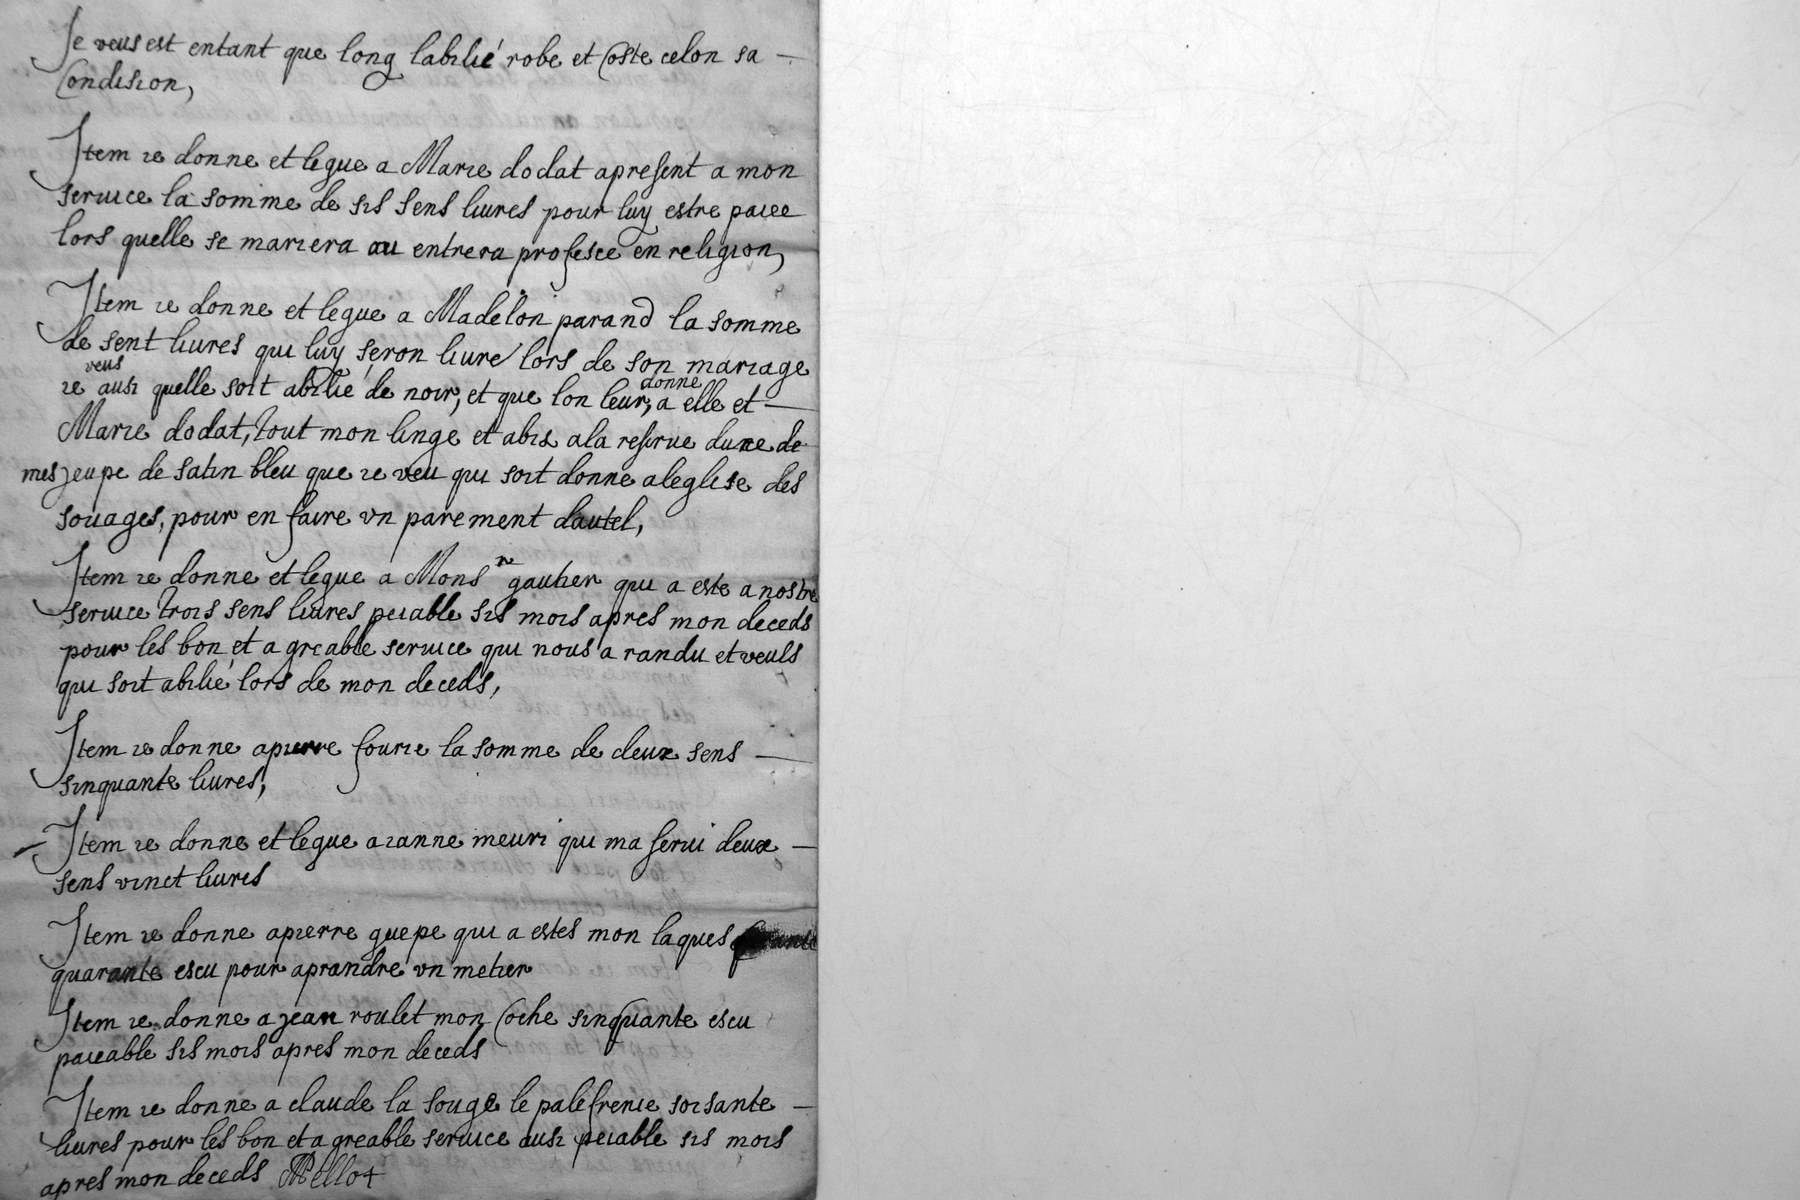 Je veus est entant que long labilié robe et Coste celon sa
Condision,
Item ie donne et legue a Marie dodat apresent a mon
seruice la somme de sis sens liures pour luy estre paiee
lors quelle se mariera au entrera professe en religion,
Item ie donne et legue a Madelon parand la somme
de sent liures qui luy seron liure lors de son mariage
ie veus ausi quelle soit abilié de noir, et que lon leur donne, a elle et
Marie dodat, tout mon linge et abis ala reserue dune de
mes jeupe de satin bleu que ie veu qui soit donne aleglise des
souages, pour en faire vn parement dautel,
Item ie donne et legue a Monsr gautier qui a este a nostre
seruice trois sens liures peiable sis mois apres mon deceds
pour les bon et a greable seruice qui nous a randu et veuls
qui soit abilié lors de mon deceds,
Item ie donne apierre fourie la somme de deux sens
sinquante liures,
Item ie donne et legue a ianne meuri qui ma serui deux
sens vinct liures
Item ie donne apierre guepe qui a estes mon laques
quarante escu pour aprandre vn metier
Item ie donne a jean roulet mon Coche sinquante escu
paieable sis mois apres mon deceds
Item ie donne a claude la souge le palefrenie soisante
liures pour les bon et a greable seruice ausi peiable sis mois
apres mon deceds MPellot